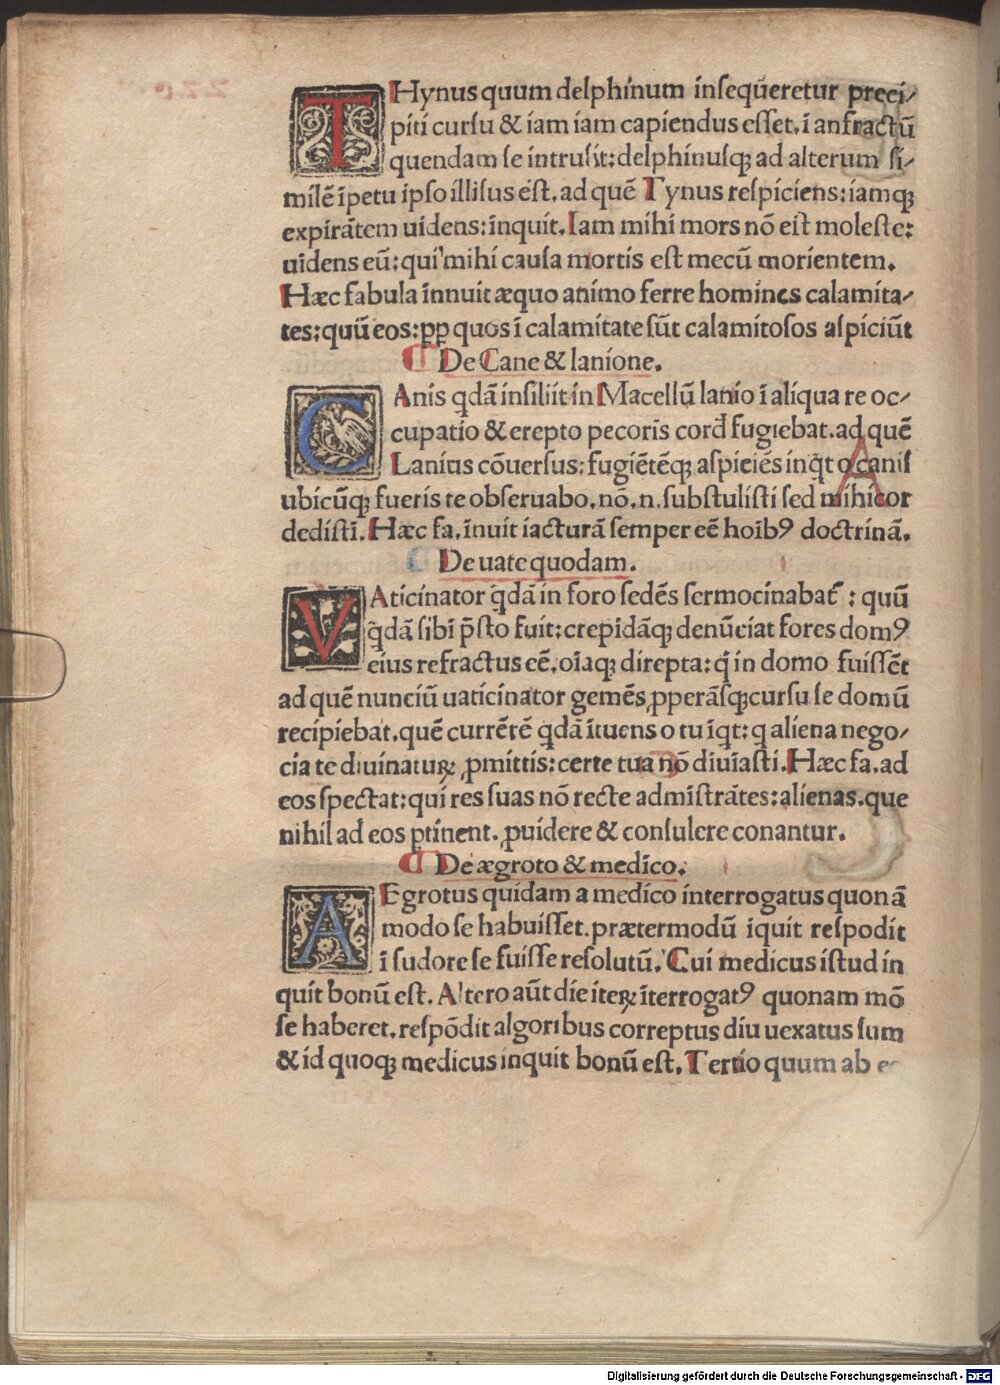 THynus quum delphinum inseq̄ueretur preci/
piti cursu & iam iam capiendus esset, ī anfractū
quendam se intrusit: delphinusq; ad alterum si/
milē īpetu ipso illisus est. ad quē Tynus respiciens: iamq;
expirātem uidens: īnquit. Iam mihi mors nō est moleste:
uidens eū: qui mihi causa mortis est mecū morientem.
Hæc fabula īnnuit æquo animo ferre homines calamita/
tes: quū eos: ꝓp quos ī calamitate sūt calamitosos aspiciūt
¶ De Cane & lanione.
CAnis qdā insiliit in Macellū lanio ī aliqua re oc/
cupatio & erepto pecoris cord̄ fugiebat. ad quē
Lanius cōuersus: fugiētēq; aspiciēs inq̄t o canis
ubicūq; fueris te obseruabo. nō. n. substulisti sed mihi cor
dedistī. Hæc fa. īnuit iacturā semper eē hoīb9 doctrinā.
¶ De uate quodam.
VAticinator q̄dā in foro sedēs sermocinabat̄ : quū
q̄dā sibi p̄sto fuit: crepidāq; denūciat fores dom9
eius refractus eē. oīaq; direpta: q̄ in domo fuissēt
ad quē nunciū uaticinator gemēs ꝓperāsq; cursu se domū
recipiebat. quē currētē q̄dā ītuens o tu īqt: q aliena nego/
cia te diuinaturꝝ ꝓmittis: certe tua nō diuīasti. Hæc fa. ad
eos spectat: qui res suas nō recte admīstrātes: alienas. que
nihil ad eos ꝑtinent. ꝓuidere & consulere conantur.
¶ De ægroto & medico.
AEgrotus quidam a medico interrogatus quonā
modo se habuisset. prætermodū iquit respodit
ī sudore se fuisse resolutū. Cui medicus istud in
quit bonū est. Altero aūt die iteꝝ īterrogat9 quonam mō
se haberet. respōdit algoribus correptus diu uexatus sum
& id quoq; medicus inquit bonū est. Tertio quum ab
Digitalisierung gefördert durch die Deutsche Forschungsgemeinschaft - DFG